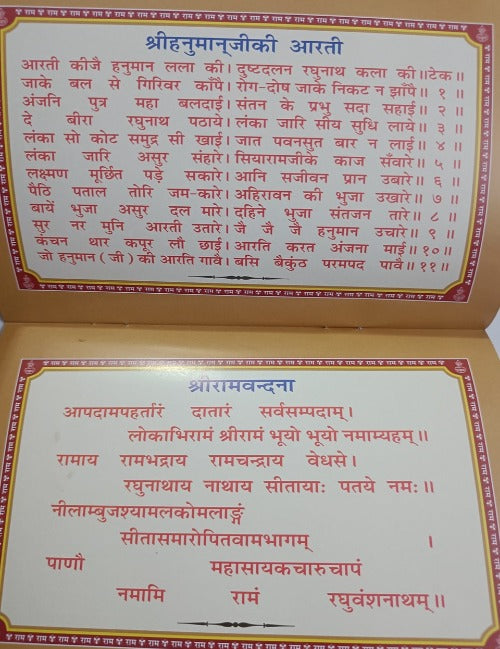 श्रीहनुमान्‌जीकी आरती
आरती कीजै हनुमान लला की। दुष्टदलन रघुनाथ कला की॥टेक॥
जाके बल से गिरिवर काँपै। रोग-दोष जाके निकट न झाँपै॥ १ ॥
अंजनि पुत्र महा बलदाई। संतन के प्रभु सदा सहाई॥ २ ॥
दे बीरा रघुनाथ पठाये। लंका जारि सीय सुधि लाये॥ ३ ॥
लंका सो कोट समुद्र सी खाई। जात पवनसुत बार न लाई॥ ४ ॥
लंका जारि असुर संहारे। सियारामजीके काज सँवारे॥ ५ ॥
लक्ष्मण मूर्छित पड़े सकारे। आनि सजीवन प्रान उबारे॥ ६ ॥
पैठि पताल तोरि जम-कारे। अहिरावन की भुजा उखारे॥ ७ ॥
बायें भुजा असुर दल मारे। दहिने भुजा संतजन तारे॥ ८ ॥
सुर नर मुनि आरती उतारे। जै जै जै हनुमान उचारे॥ ९ ॥
कंचन थार कपूर लौ छाई। आरति करत अंजना माई॥१०॥
जो हनुमान (जी) की आरति गावै। बसि बैकुंठ परमपद पावै॥११॥
श्रीरामवन्दना
आपदामपहर्तारं दातारं सर्वसम्पदाम्।
लोकाभिरामं श्रीरामं भूयो भूयो नमाम्यहम्॥
रामाय रामभद्राय रामचन्द्राय वेधसे।
रघुनाथाय नाथाय सीतायाः पतये नमः॥
नीलाम्बुजश्यामलकोमलाङ्गं
सीतासमारोपितवामभागम् ।
पाणौ महासायकचारुचापं
नमामि रामं रघुवंशनाथम्॥